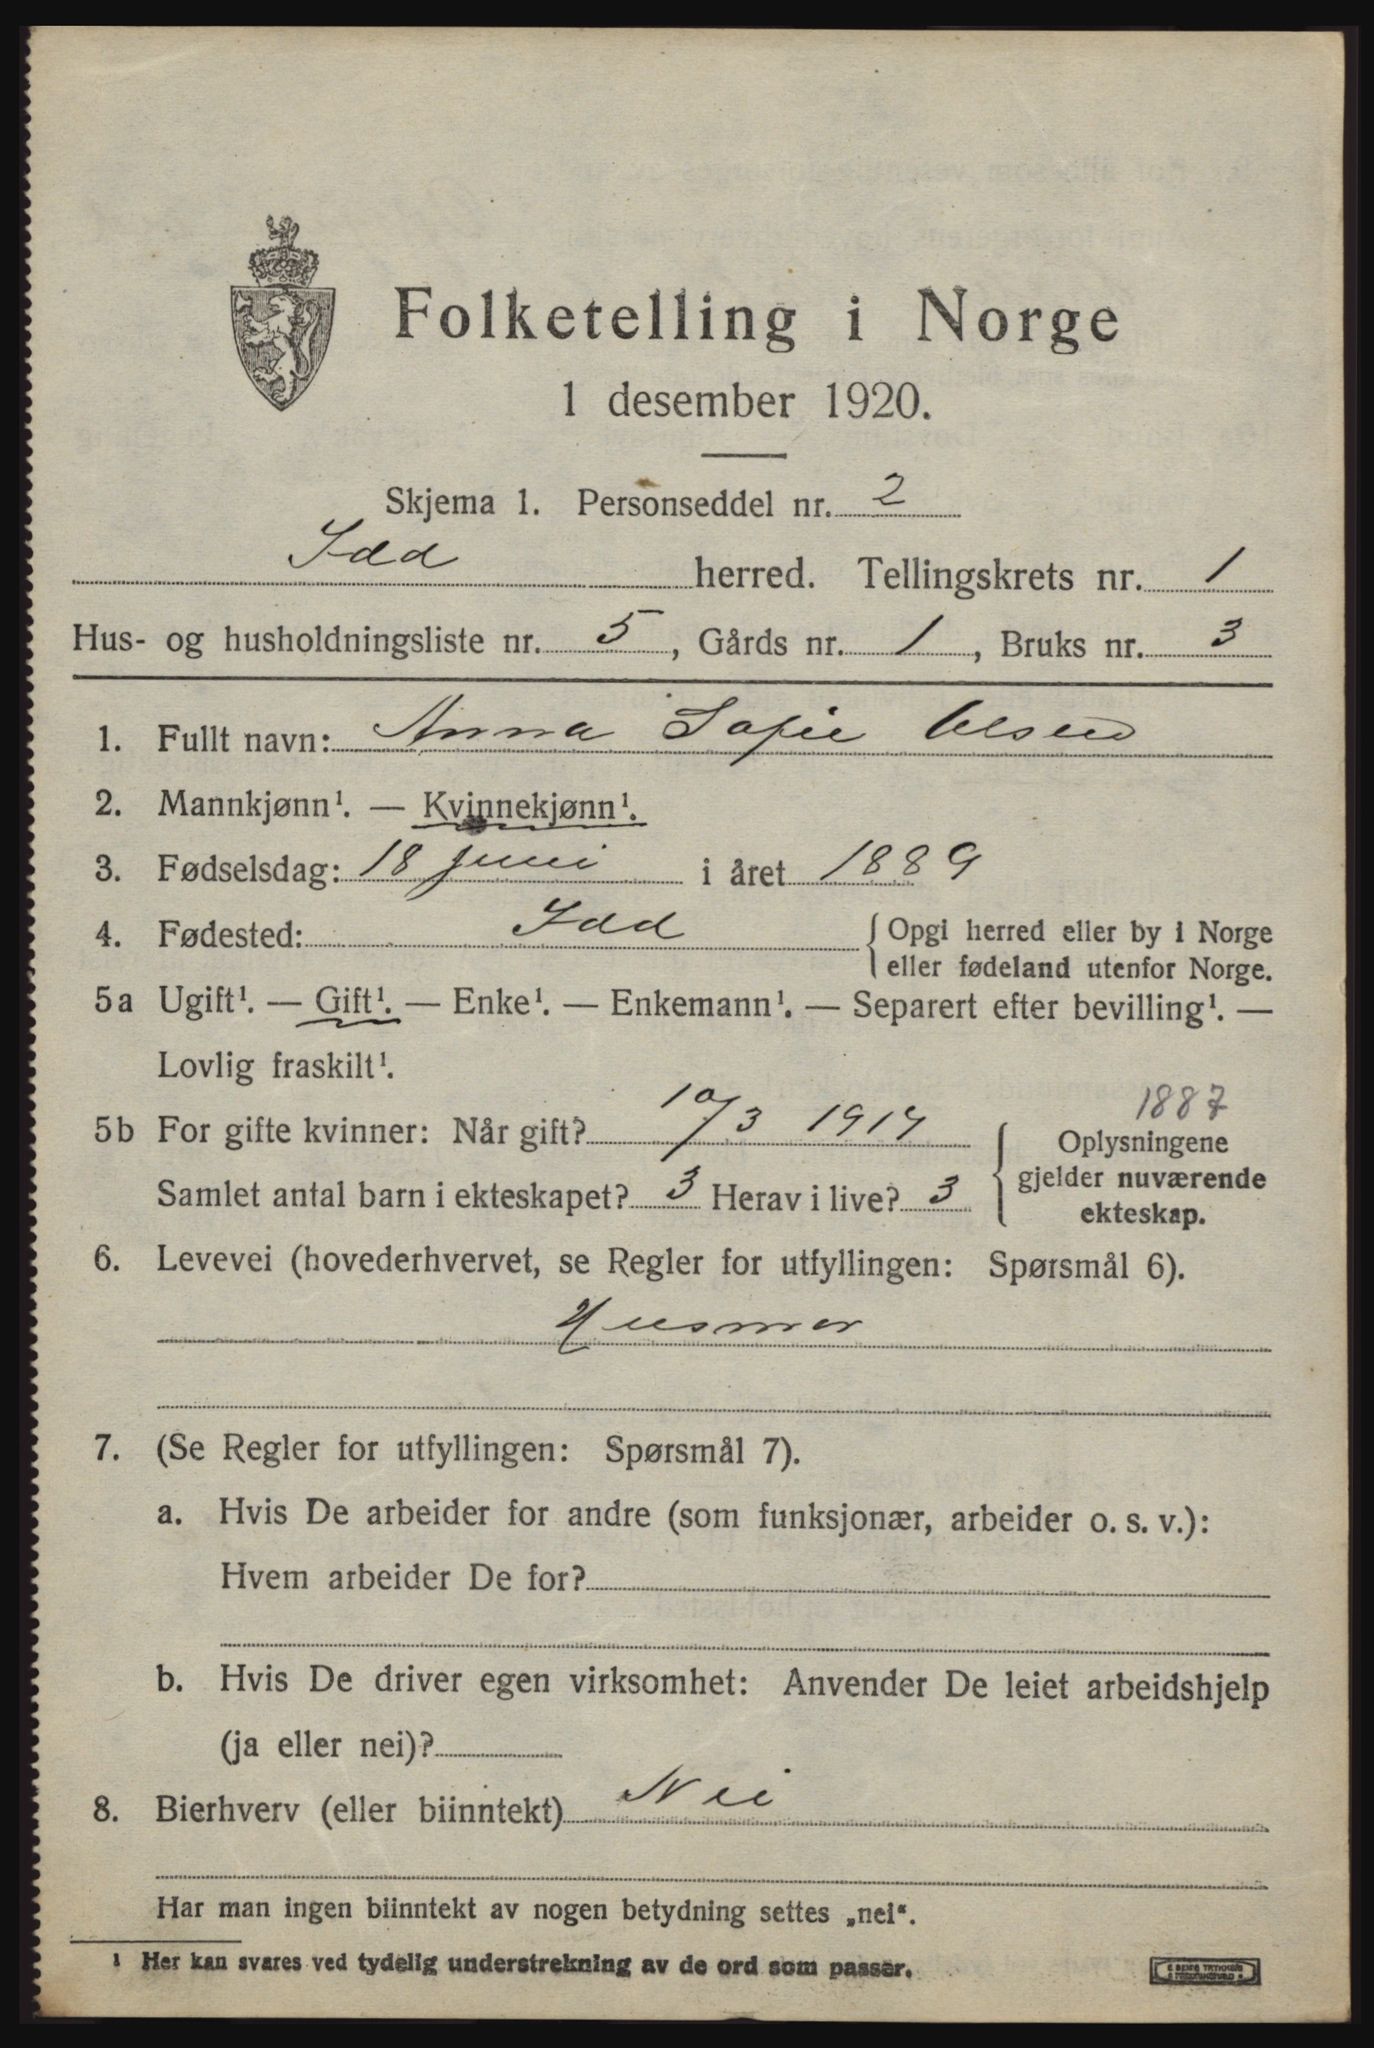 Folketelling i Norge
1 desember 1920.
Skjema 1. Personseddel nr. 2
Idd herred. Tellingskrets nr. 1
Hus- og husholdningsliste nr. 5, Gårds nr. 1, Bruks nr. 3
1. Fullt navn: Anna Sofie Olsen
2. Mannkjønn¹. — Kvinnekjønn¹.
3. Fødselsdag: 18 juni i året 1889
4. Fødested: Idd { Opgi herred eller by i Norge
eller fødeland utenfor Norge.
5a Ugift¹. — Gift¹. — Enke¹. — Enkemann¹. — Separert efter bevilling¹. —
Lovlig fraskilt¹.
1887
5b For gifte kvinner: Når gift? 10/3 1914 { Oplysningene
Samlet antal barn i ekteskapet? 3 Herav i live? 3 gjelder nuværende
ekteskap.
6. Levevei (hovederhvervet, se Regler for utfyllingen: Spørsmål 6).
Husmor
7. (Se Regler for utfyllingen: Spørsmål 7).
a. Hvis De arbeider for andre (som funksjonær, arbeider o. s. v.):
Hvem arbeider De for?
b. Hvis De driver egen virksomhet: Anvender De leiet arbeidshjelp
(ja eller nei)?
8. Bierhverv (eller biinntekt) Nei
Har man ingen biinntekt av nogen betydning settes „nei“.
¹ Her kan svares ved tydelig understrekning av de ord som passer.